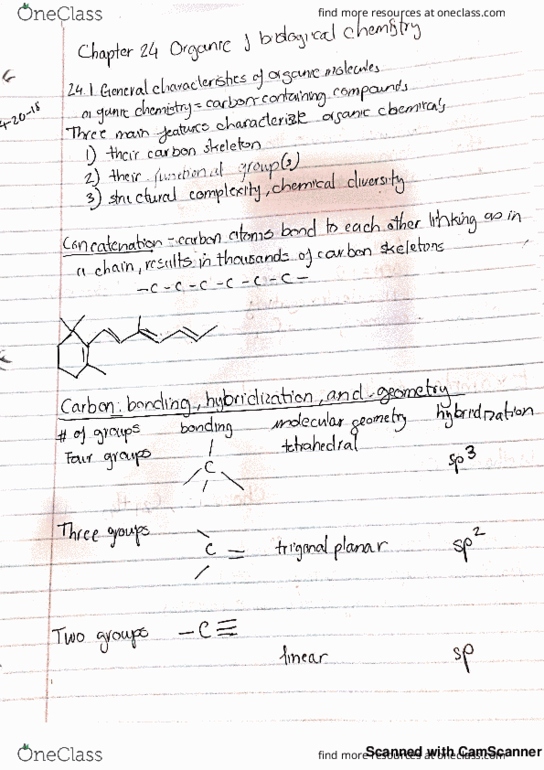 OneClass
find more resources at oneclass.com
Chapter 24 Organic & biological chemistry
4-20-18
24.1 General characteristics of organic molecules
organic chemistry = carbon-containing compounds
Three main features characterize organic chemicals
1) their carbon skeleton
2) their functional group(s)
3) structural complexity, chemical diversity
Concatenation - carbon atoms bond to each other linking as in
a chain, results in thousands of carbon skeletons
-C-C-C-C-C-C-
Carbon: bonding, hybridization, and geometry
# of groups bonding molecular geometry hybridization
Four groups C tetrahedral sp3
Three groups C= trigonal planar sp2
Two groups -C≡ linear sp
OneClass
find more resources at oneclass.com
Scanned with CamScanner